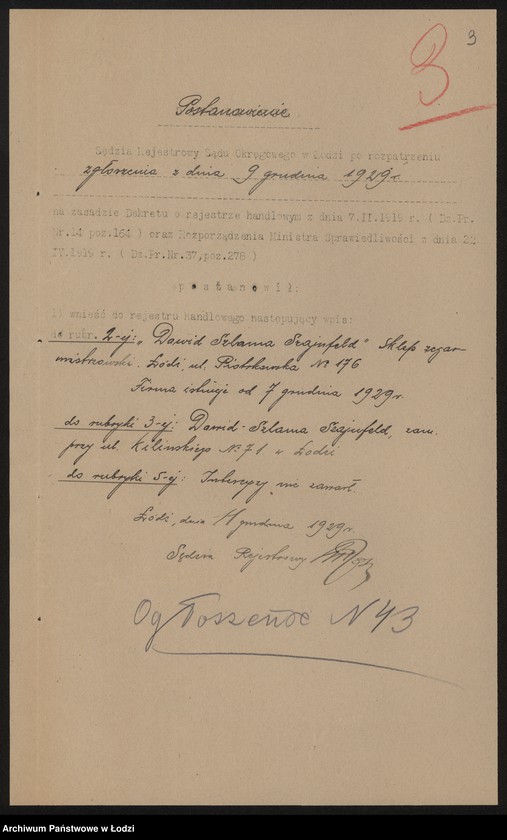 3
3
Postanowienie
Sędzia Rejestrowy Sądu Okręgowego w Łodzi po rozpatrzeniu
zgłoszenia z dnia 9 grudnia 1929 r.
na zasadzie Dekretu o rejestrze handlowym z dnia 7.II.1919 r. ( Dz.Pr.
Nr.14 poz.164 ) oraz Rozporządzenia Ministra Sprawiedliwości z dnia 22
IV.1919 r. ( Dz.Pr.Nr.37,poz.278 )
p o s t a n o w i ł :
1) wnieść do rejestru handlowego następujący wpis:
do rubr. 2-ej: „Dawid Szlama Szajnfeld" Sklep zegar-
mistrzowski. Łódź, ul. Piotrkowska № 176
Firma istnieje od 7 grudnia 1929 r.
do rubryki 3-ej: Dawid-Szlama Szajnfeld, zam.
przy ul. Kilińskiego № 71 w Łodzi
do rubryki 5-ej: Intercyzy nie zawarł.
Łódź, dnia 11 grudnia 1929 r.
Sędzia Rejestrowy
Ogłoszenie N 43
Archiwum Państwowe w Łodzi